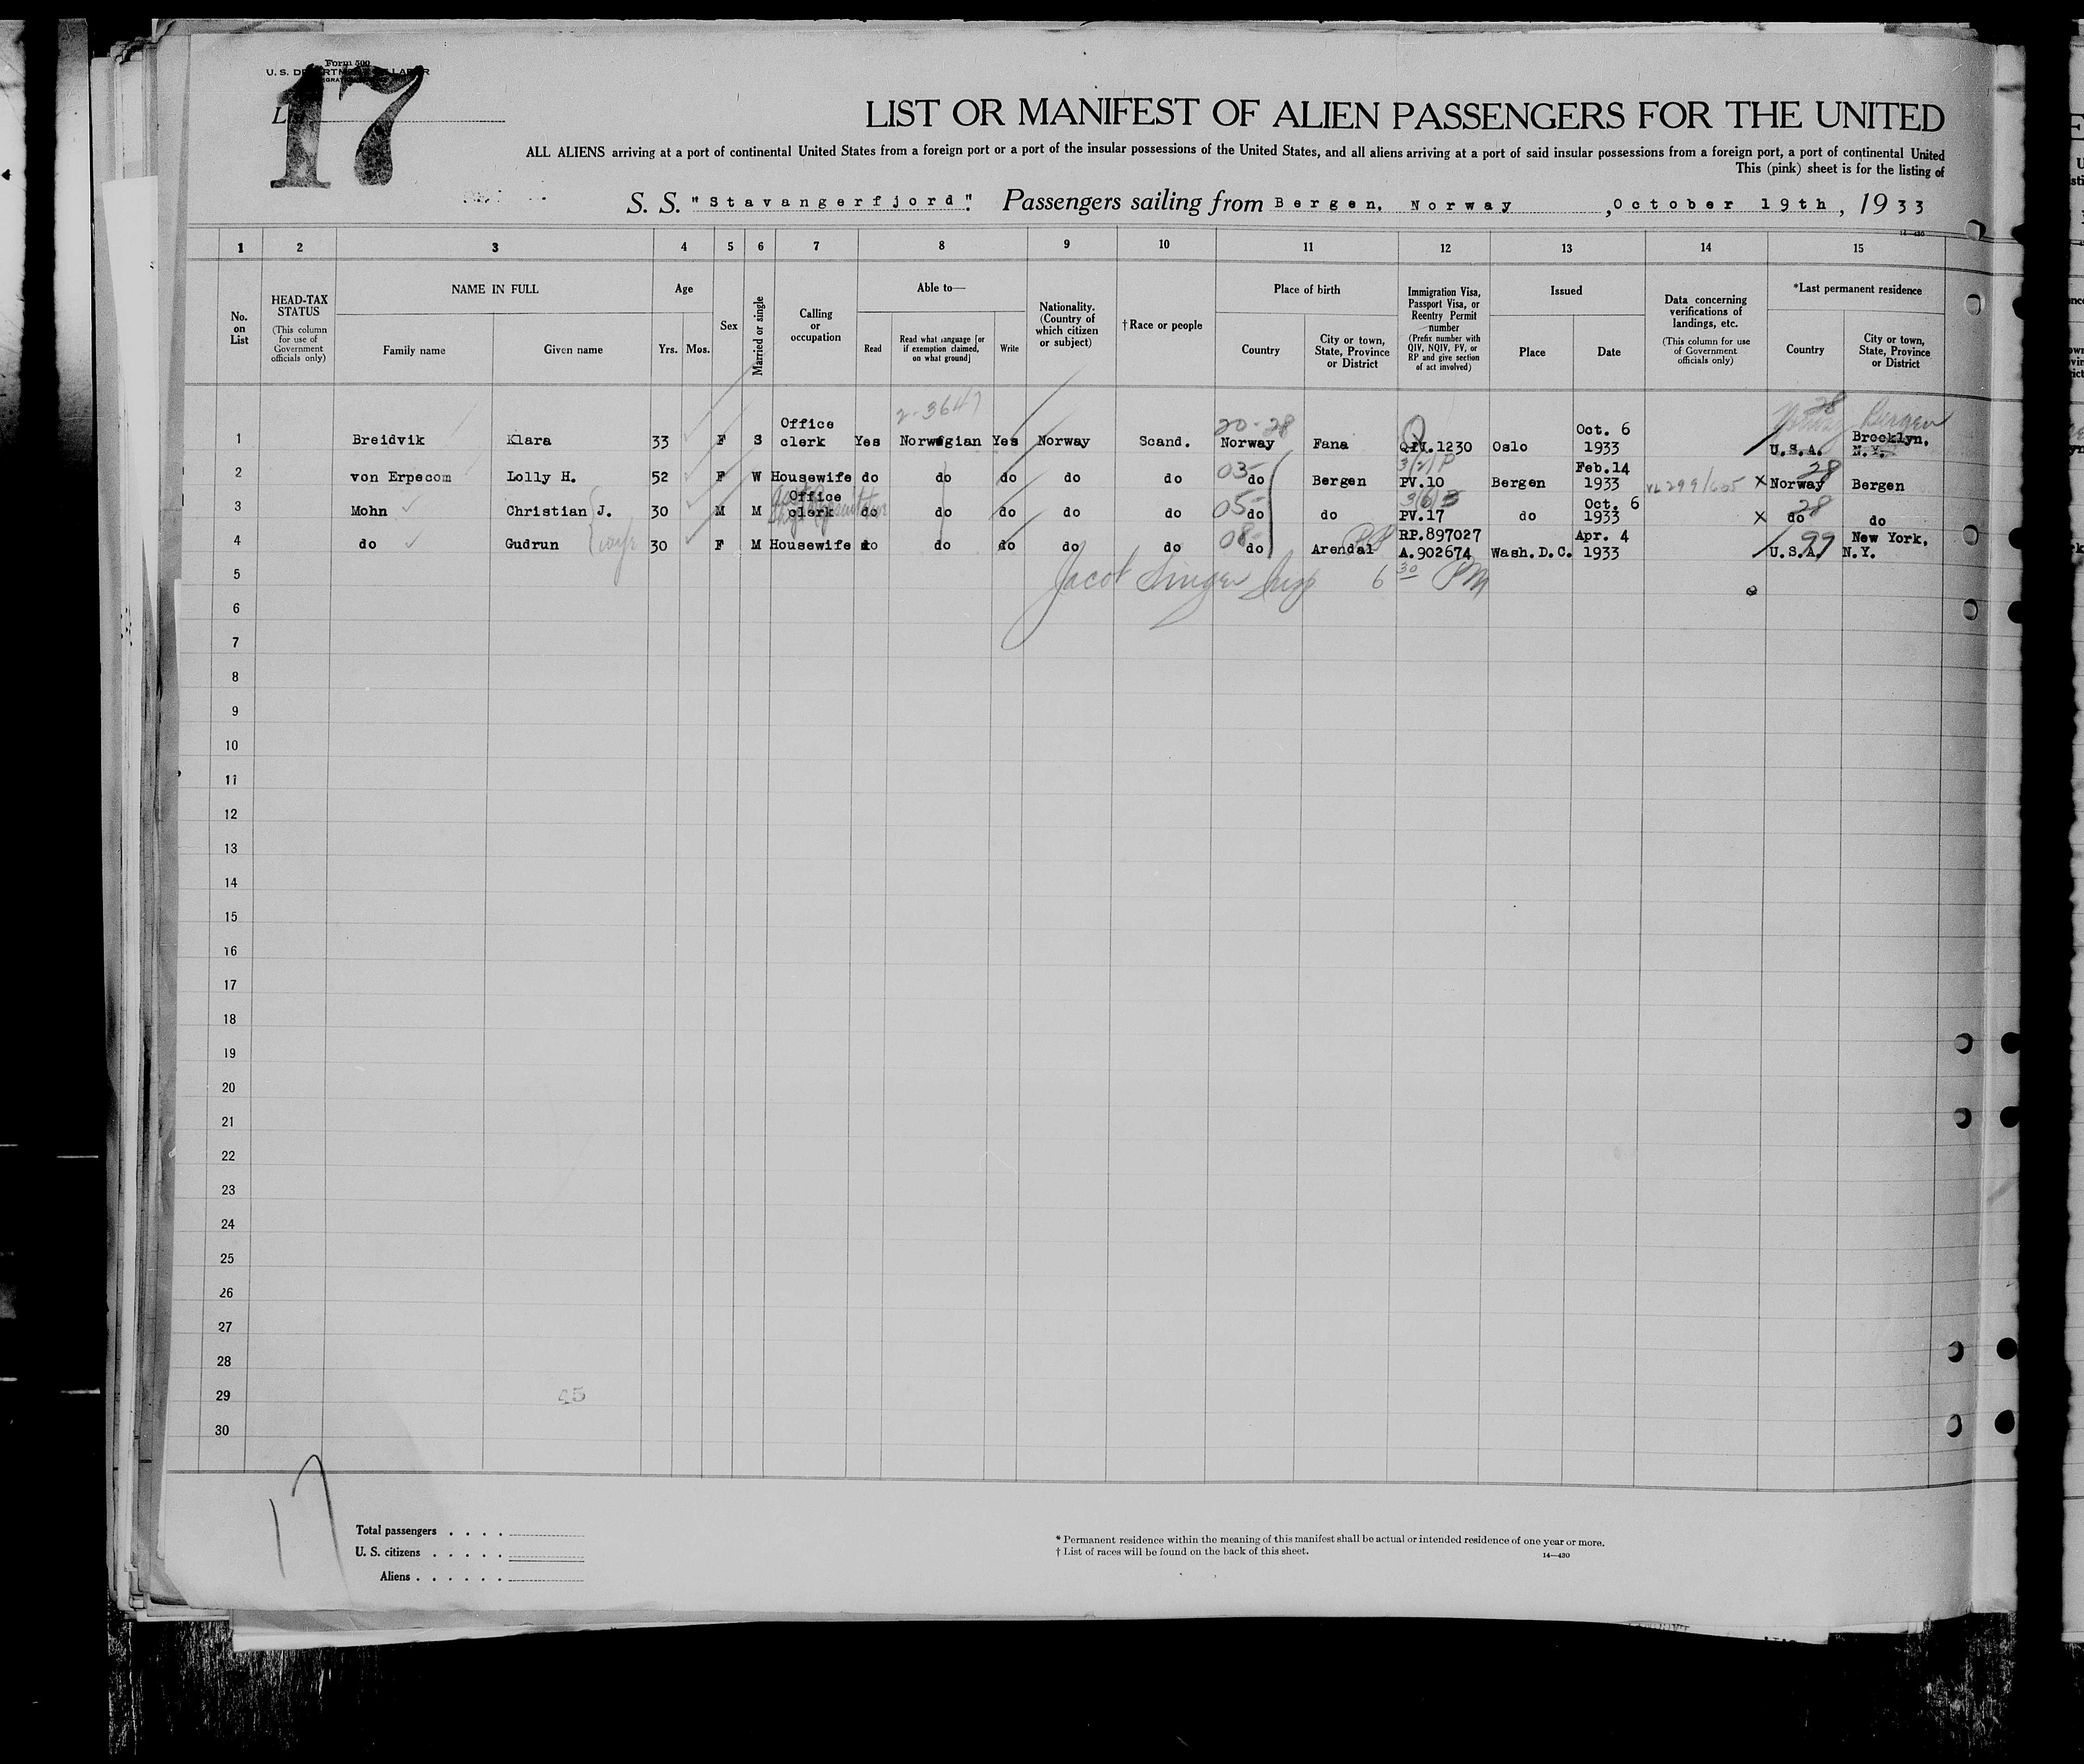 Form 500
U. S. DEPARTMENT OF LABOR
17
LIST OR MANIFEST OF ALIEN PASSENGERS FOR THE UNITED
ALL ALIENS arriving at a port of continental United States from a foreign port or a port of the insular possessions of the United States, and all aliens arriving at a port of said insular possessions from a foreign port, a port of continental United
This (pink) sheet is for the listing of
S. S. "Stavangerfjord". Passengers sailing from Bergen, Norway, October 19th, 1933
14-430
1 2 3 4 5 6 7 8 9 10 11 12 13 14 15
No. on List
HEAD-TAX STATUS (This column for use of Government officials only)
NAME IN FULL Family name Given name
Age Yrs. Mos.
Sex
Married or single
Calling or occupation
Able to— Read Read what language [or if exemption claimed, on what ground] Write
Nationality. (Country of which citizen or subject)
†Race or people
Place of birth Country City or town, State, Province or District
Immigration Visa, Passport Visa, or Reentry Permit number (Prefix number with QIV, NQIV, PV, or RP and give section of act involved)
Issued Place Date
Data concerning verifications of landings, etc. (This column for use of Government officials only)
*Last permanent residence Country City or town, State, Province or District
2-3647 20-28 Q 28 Norway Bergen
1 Breidvik Klara 33 F S Office clerk Yes Norwegian Yes Norway Scand. Norway Fana QIV.1230 Oslo Oct. 6 1933 U.S.A. Brooklyn, N.Y.
03- 3(2)P 28
2 von Erpecom Lolly H. 52 F W Housewife do do do do do do Bergen PV.10 Bergen Feb.14 1933 VL 299/605 X Norway Bergen
05- 3(6)3 28
3 Mohn Christian J. 30 M M Office clerk do do do do do do do PV.17 do Oct. 6 1933 X do do
wife 08- RP 99
4 do Gudrun 30 F M Housewife do do do do do do Arendal RP.897027 A.902674 Wash.D.C. Apr. 4 1933 U.S.A. New York, N.Y.
5 Jacob Singer Insp 6 30 PM
6
7
8
9
10
11
12
13
14
15
16
17
18
19
20
21
22
23
24
25
26
27
28
29 45
30
17
Total passengers . . . .
U. S. citizens . . . . .
Aliens . . . . . .
* Permanent residence within the meaning of this manifest shall be actual or intended residence of one year or more.
† List of races will be found on the back of this sheet.
14—430